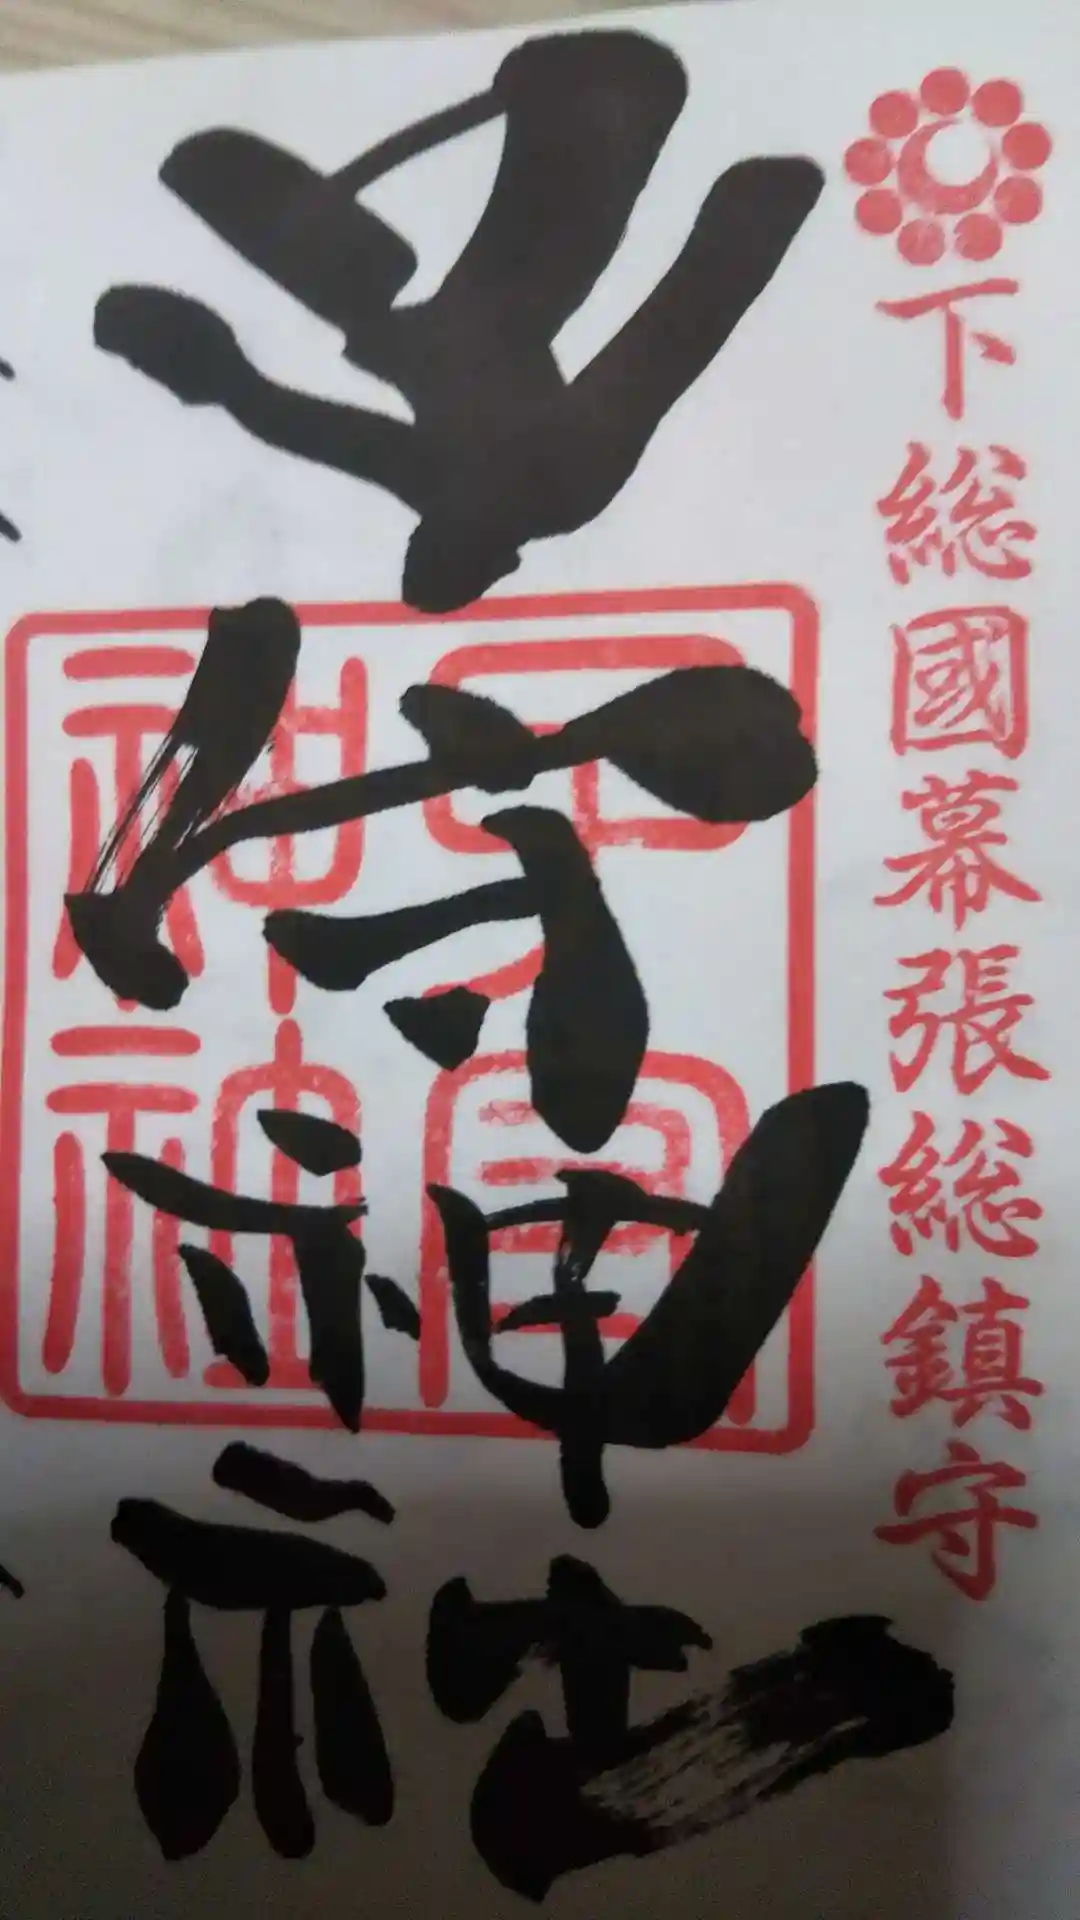 下総國幕張総鎮守
子守神社
子守
神社